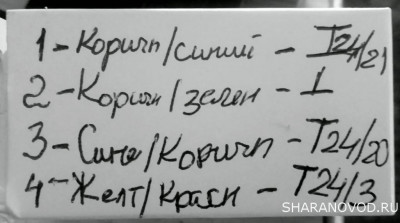 1 - Коричн/синий - T24/21
2 - Коричн/зелен - 1
3 - Сине/Коричн - T24/20
4 - Желт/Красн - T24/3
SHARANOVOD.RU